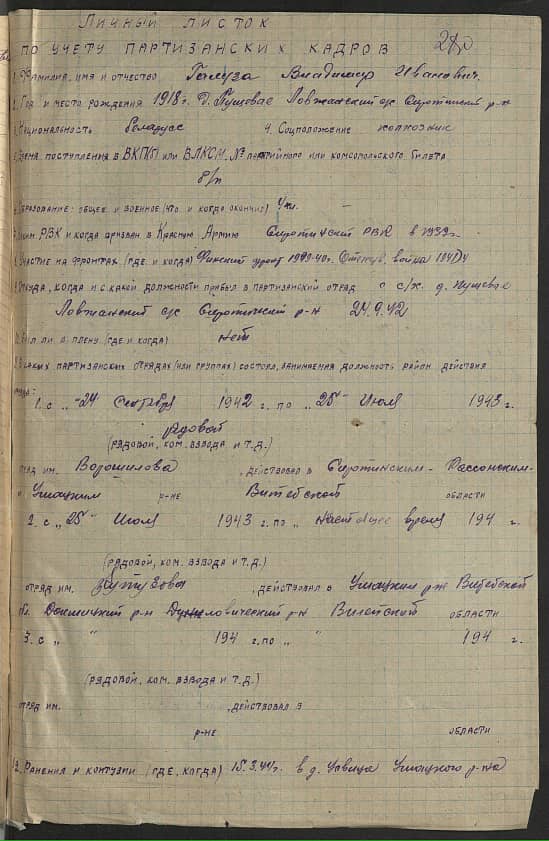 Личный листок
по учету партизанских кадров
1. Фамилия, имя и отчество Владимир Иванович.
2. Год и место рождения 1918 г. д. Пущевое Ловжанский с/с Сиротинский р-н
3. Национальность беларус 4. Соцположение колхозник
5. Время поступления в ВКП(б) или ВЛКСМ, № партийного или комсомольского билета
б/п
6. Образование: общее и военное (что и когда окончил)
7. Каким РВК и когда призван в Красную Армию Сиротинский РВК в 1939 г.
8. Участие на фронтах (где и когда) Финский фронт 1939-40 г. война
9. Откуда, когда и с какой должности прибыл в партизанский отряд с с/х. д. Пущевое
Ловжанский с/с Сиротинский р-н 24.9.42
10. Был ли в плену (где и когда) нет
11. В каких партизанских отрядах (или группах) состоял, занимаемая должность район действия
отряда:
1. с „24 сентября 1942 г. по „25" июля 1943 г.
рядовой
(рядовой, ком. взвода и т.д.)
отряд им. Ворошилова, действовал в Сиротинским - Россонским-
и Ушацким р-не Витебской области
2. с „25" июля 1943 г. по „ настоящее время 194 г.
(рядовой, ком. взвода и т.д.)
отряд им. Кутузова, действовал в Ушацким р-не Витебской
обл. Докшицкий р-н Дуниловический р-н Вилейской области
3. с „ " 194 г. по „ " 194 г.
(рядовой, ком. взвода и т.д.)
отряд им. , действовал в
р-не области
12. Ранения и контузии (где, когда) 15.3.44 г. в д. Ушацкого р-на